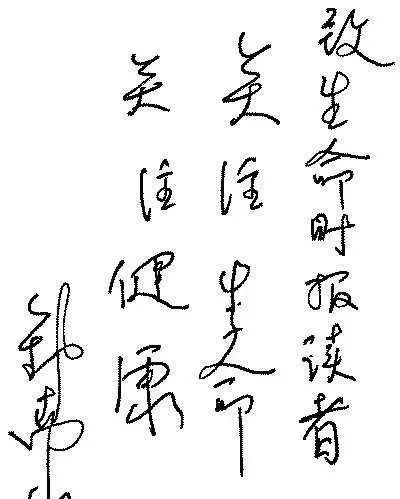 致生命时报读者
关注生命
关注健康